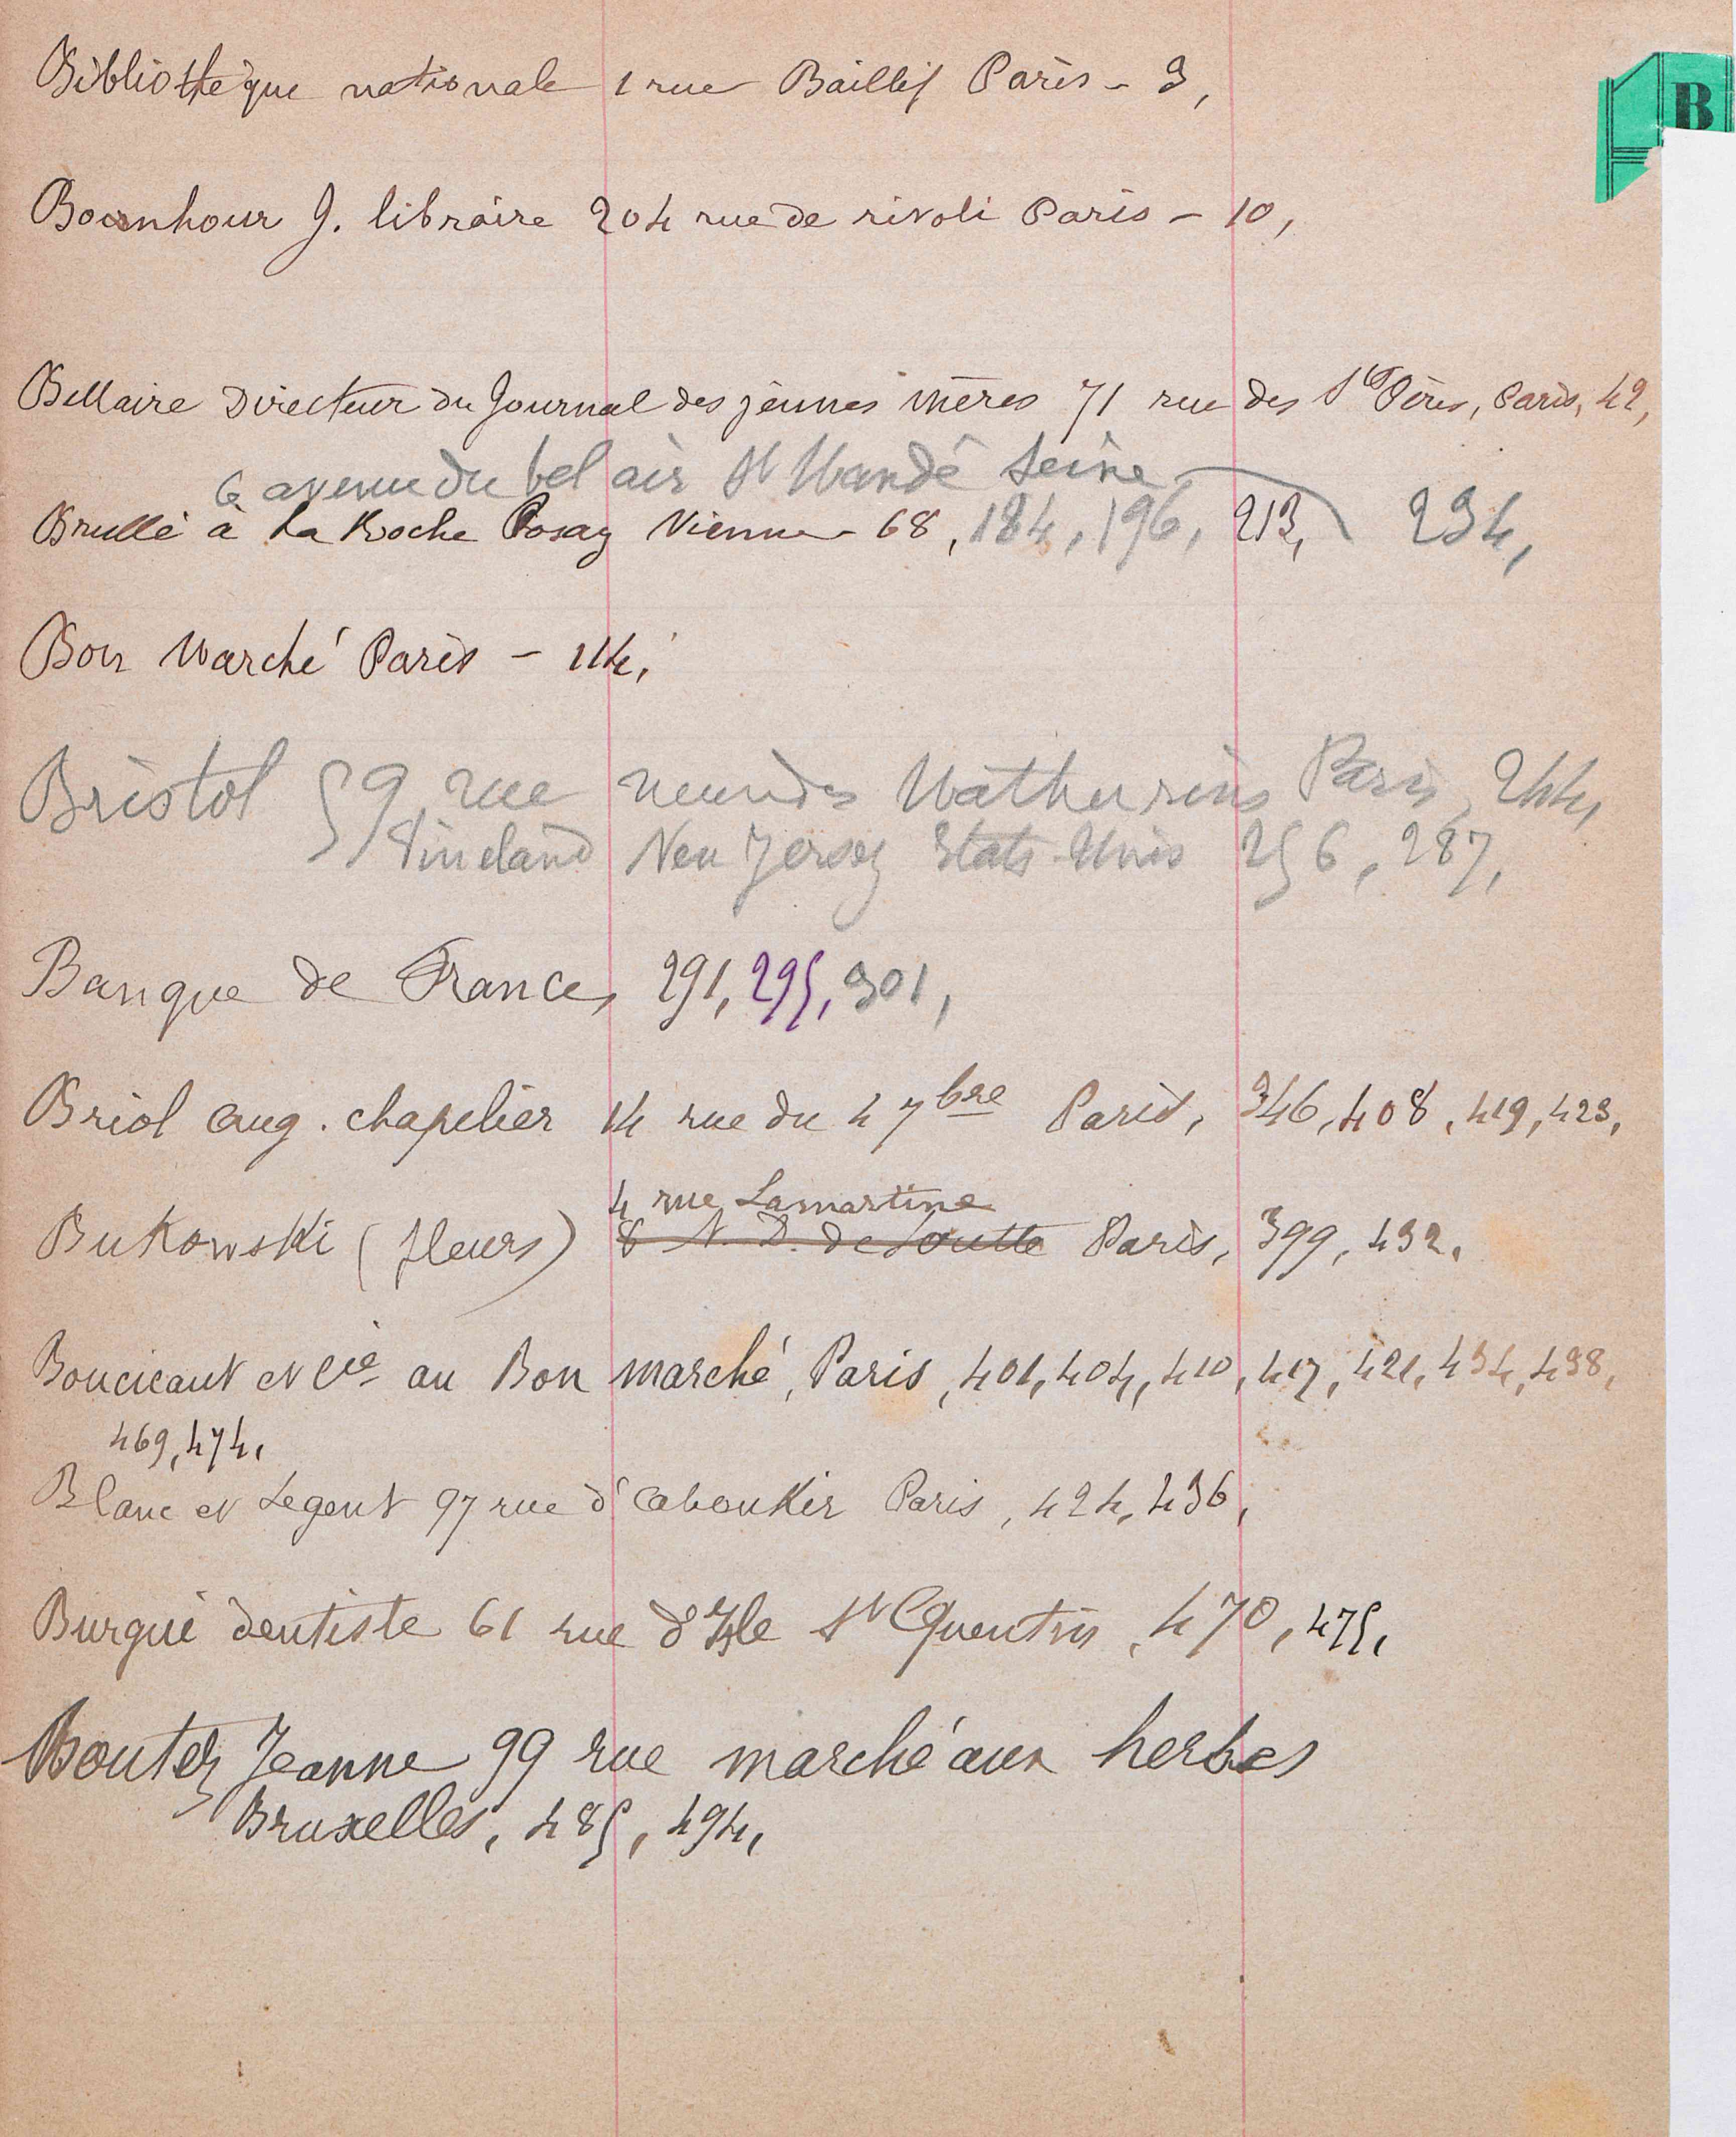 B
Bibliothèque nationale 1 rue Baillif Paris - 3,
Boanhour J. libraire 204 rue de rivoli Paris - 10,
Bellaire Directeur du Journal des jeunes mères 71 rue des Sts Pères, Paris, 42,
6 avenue du bel air St Mandé Seine
Brullé à La Roche Posay Vienne - 68, 184, 196, 213, 234,
Bon Marché Paris - 114,
Bristol 59 rue neuve des Mathurins Paris, 244,
Vineland New Jersey Etats-Unis 256, 287,
Banque de France, 291, 295, 301,
Briol aug. chapelier 14 rue du 4 7bre Paris, 346, 408, 419, 423,
4 rue Lamartine
Bukowski (fleurs) 8 N. D. de Paris, 399, 432,
Boucicaut et Cie au Bon marché, Paris, 401, 404, 410, 417, 421, 434, 438,
469, 474,
Blanc et Legent 97 rue d'aboukir Paris, 424, 436,
Burgué dentiste 61 rue d'Isle St Quentin, 470, 475,
Boutez Jeanne 99 rue marché aux herbes
Bruxelles, 485, 494,